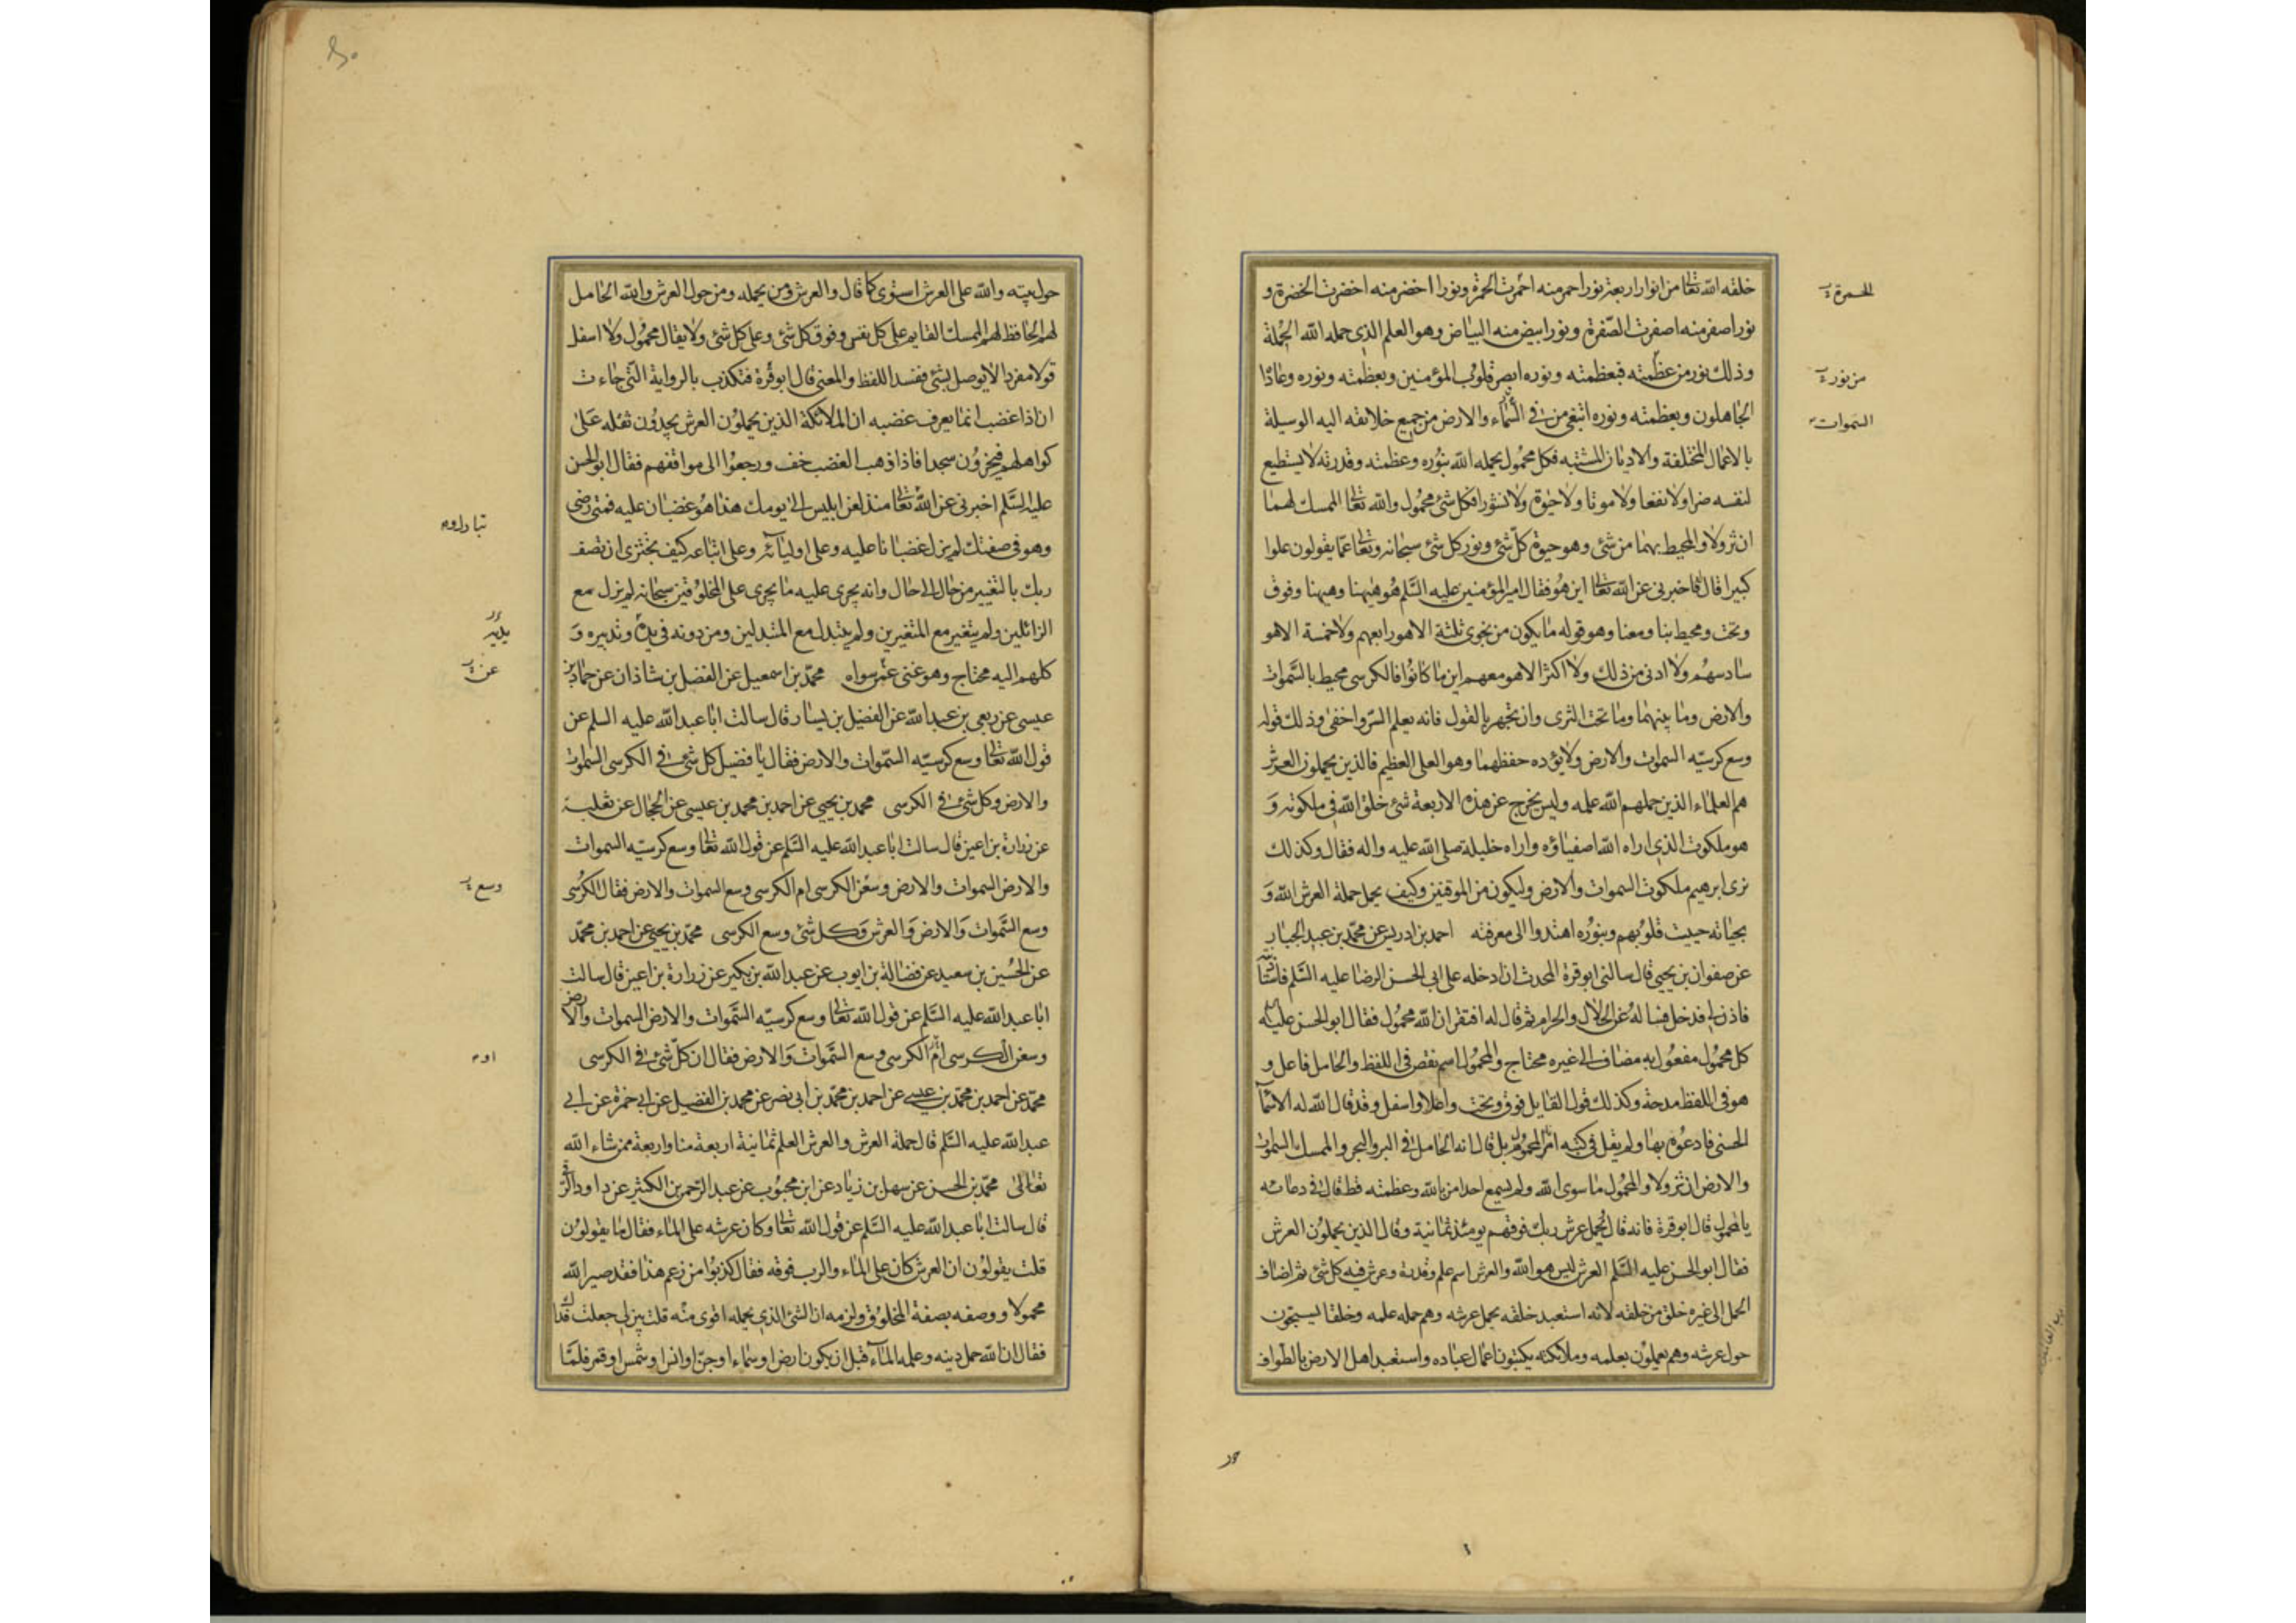 خلقه الله تعالى من انوار اربعة نور احمر منه احمرت الحمرة ونورا اخضر منه اخضرت الخضرة و
نور اصفر منه اصفرت الصفرة ونور ابيض منه البياض وهو العلم الذى حمله الله الجملة
وذلك نور من عظمته فبعظمته ونوره ابصر قلوب المؤمنين وبعظمته ونوره وعاداا
الجاهلون وبعظمته ونوره ابتغى من فى السماء والارض من جميع خلائقه اليه الوسيلة
بالاعمال المختلفة والاديان المشتبه فكل محمول يحمله الله بنوره وعظمته وقدرته لا يستطيع
لنفسه ضرا ولا نفعا ولا موتا ولا حيوة ولا نشورا فكل شئ محمول والله تعالى الممسك لهما
ان تزولا والمحيط بهما من شئ وهو حيوة كل شئ ونور كل شئ سبحانه وتعالى عما يقولون علوا
كبيرا قال فاخبرنى عن الله تعالى اين هو فقال امير المؤمنين عليه السلم هو هيهنا وهيهنا وفوق
وتحت ومحيط بنا ومعنا وهو قوله ما يكون من نجوى ثلثة الا هو رابعهم ولا خمسة الا هو
سادسهم ولا ادنى من ذلك ولا اكثر الا هو معهم اين ما كانوا فالكرسى محيط بالسموات
والارض وما بينهما وما تحت الثرى وان تجهر بالقول فانه يعلم السر واخفى وذلك قوله
وسع كرسيه السموات والارض ولا يؤده حفظهما وهو العلى العظيم فالذين يحملون العرش
هم العلماء الذين حملهم الله علمه وليس يخرج عن هذه الاربعة شئ خلق الله فى ملكوته و
هو ملكوت الذى اراه الله اصفياؤه واراه خليله صلى الله عليه واله فقال وكذلك
نرى ابرهيم ملكوت السموات والارض وليكون من الموقنين وكيف يحمل حملة العرش الله و
بحياته حييت قلوبهم وبنوره اهتدوا الى معرفته احمد بن ادريس عن محمد بن عبد الجبار
عن صفوان بن يحيى قال سالنى ابو قرة المحدث ان ادخله على ابى الحسن الرضا عليه السلم فاستاذنته
فاذن لى فدخل فساله عن الحلال والحرام ثم قال له افتقر ان الله محمول فقال ابو الحسن عليه السلم
كل محمول مفعول به مضاف الى غيره محتاج والمحمول اسم نقص فى اللفظ والحامل فاعل و
هو فى اللفظ مدحة وكذلك قول القايل فوق وتحت واعلا واسفل وقد قال الله له الاسماء
الحسنى فادعوه بها ولم يقل فى كتبه انه المحمول بل قال انه الحامل فى البر والبحر والممسك السموات
والارض ان تزولا والمحمول ما سوى الله ولم يسمع احد امن بالله وعظمته قط قال فى دعائه
يا محمول قال ابو قرة فانه قال يحمل عرش ربك فوقهم يومئذ ثمانية وقال الذين يحملون العرش
فقال ابو الحسن عليه السلم العرش ليس هو الله والعرش اسم علم وقدرة وعرش فيه كل شئ ثم اضاف
الحمل الى غيره خلق من خلقه لانه استعبد خلقه بحمل عرشه وهم حمله علمه وخلقا يسبحون
حول عرشه وهم يعملون بعلمه وملائكة يكتبون اعمال عباده واستعبد اهل الارض بالطواف
الحمرة
من نوره
السموات
حول بيته والله على العرش استوى كما قال والعرش ومن يحمله ومن حول العرش والله الحامل
لهم الحافظ لهم الممسك القايم على كل نفس وفوق كل شئ وعلى كل شئ ولا يقال محمول ولا اسفل
قولا مفردا لا يوصل بشئ فيفسد اللفظ والمعنى قال ابو قرة فتكذب بالرواية التى جاءت
ان اذا غضب انما يعرف غضبه ان الملائكة الذين يحملون العرش يجدون ثقله على
كواهلهم فيخرون سجدا فاذا ذهب الغضب خف ورجعوا الى مواقفهم فقال ابو الحسن
عليه السلم اخبرنى عن الله تعالى منذ لعن ابليس الى يومك هذا هو غضبان عليه فمتى رضى
وهو فى صفتك لم يزل غضبانا عليه وعلى اوليائه وعلى اتباعه كيف تجترى ان تصف
ربك بالتغيير من حال الى حال وانه يجرى عليه ما يجرى على المخلوقين سبحانه لم يزل مع
الزائلين ولم يتغير مع المتغيرين ولم يتبدل مع المتبدلين ومن دونه فى يده وتدبيره و
كلهم اليه محتاج وهو غنى عمن سواه محمد بن اسمعيل عن الفضل بن شاذان عن حماد بن
عيسى عن ربعى بن عبد الله عن الفضيل بن يسار قال سالت ابا عبد الله عليه السلم عن
قول الله تعالى وسع كرسيه السموات والارض فقال يا فضيل كل شئ فى الكرسى السموات
والارض وكل شئ فى الكرسى محمد بن يحيى عن احمد بن محمد بن عيسى عن الحجال عن ثعلبة
عن زرارة بن اعين قال سالت ابا عبد الله عليه السلم عن قول الله تعالى وسع كرسيه السموات
والارض السموات والارض وسعن الكرسى ام الكرسى وسع السموات والارض فقال الكرسى
وسع السموات والارض والعرش وكل شئ وسع الكرسى محمد بن يحيى عن احمد بن محمد
عن الحسين بن سعيد عن فضالة بن ايوب عن عبد الله بن بكير عن زرارة بن اعين قال سالت
ابا عبد الله عليه السلم عن قول الله تعالى وسع كرسيه السموات والارض السموات والارض
وسعن الكرسى ام الكرسى وسع السموات والارض فقال ان كل شئ فى الكرسى
محمد عن احمد بن محمد بن عيسى عن احمد بن محمد بن ابى نصر عن محمد بن الفضيل عن ابى حمزة عن ابى
عبد الله عليه السلم قال حملة العرش والعرش العلم ثمانية اربعة منا واربعة ممن شاء الله
تعالى محمد بن الحسن عن سهل بن زياد عن ابن محبوب عن عبد الرحمن بن الكثير عن داود الرقى
قال سالت ابا عبد الله عليه السلم عن قول الله تعالى وكان عرشه على الماء فقال ما يقولون
قلت يقولون ان العرش كان على الماء والرب فوقه فقال كذبوا من زعم هذا فقد صير الله
محمولا ووصفه بصفة المخلوق ولزمه ان الشئ الذى يحمله اقوى منه قلت بين لى جعلت فداك
فقال ان الله حمل دينه وعلمه الماء قبل ان يكون ارض او سماء او جن او انس او شمس او قمر فلما
يديه
عن
وسع